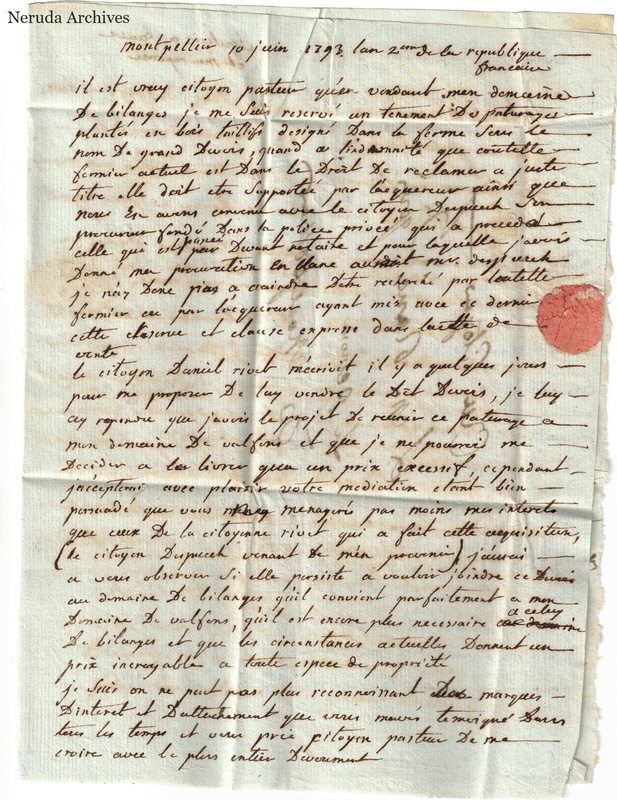 Neruda Archives
montpellier 10 juin 1793. lan 2em de la republique
francaise
il est vray citoyen pasteur qu'en vendant mon domeine
De bilanges je me suis reservé un tenement De paturages
plantés en bois taillifs designé Dans la ferme sous le
nom De grand Devois, quand a lindemnité que coutelle
fermier actuel est Dans le Droit De reclamer a juste
titre elle doit etre supportée par lacquereur ainsi que
nous En avons convenu avec le citoyen Despuech son
procureur fondé Dans la police privée qui a precedé
celle qui est passée par Devant notaire et pour laquelle j'avois
Donné ma procuration en blanc audit mr. despuech
je n'ay Donc pas a craindre Detre recherché par coutelle
fermier ou par lacquereur ayant mis avec ce dernier
cette reserve et clause expresse dans lacte de
vente
le citoyen Daniel rivet m'ecrivit il y a quelques jours
pour me proposer De luy vendre le Dit Devois, je luy
ay repondre que j'avois le projet De reunir ce paturage a
mon domaine De valfons et que je ne pourrois me
Decider a les livrer qu'a un prix excessif, cependant
j'accepterai avec plaisir votre mediation etant bien
persuadé que vous menagerés pas moins mes interets
que ceux De la citoyenne rivet qui a fait cette acquisition,
(le citoyen Despuech venant De m'en prevenir) j'aurai
a vous observer si elle persiste a vouloir joindre ce Devois
au domaine De bilanges qu'il convient parfaitement a mon
Domaine De valfons, qu'il est encore plus necessaire a celuy
De bilanges et que les circonstances actuelles Donnent un
prix incroyable a toute espece de propriété
je suis on ne peut pas plus reconnoissant Des marques
Dinteret et Dattachement que vous m'avés temoigné Dans
tous les temps et vous prie citoyen pasteur De me
croire avec le plus entier Devoument